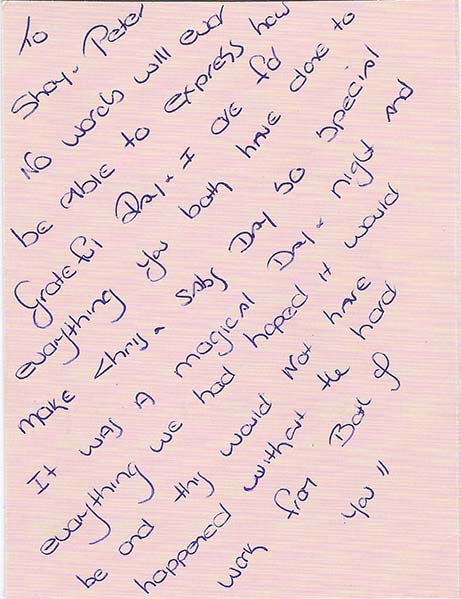 To
Shay + Peter
No words will ever
be able to express how
Grateful Day + I are for
everything you both have done to
make Chris + Sabs Day so special
It was A magical Day + night and
everything we had hoped it would
be and this would Not have
happened without the hard
work from Both of
you!!